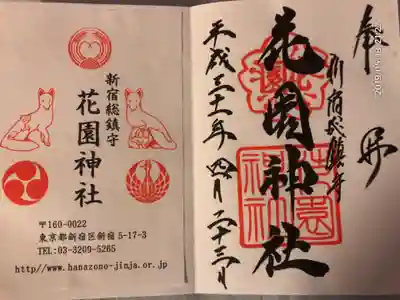 新宿総鎮守
花園神社
〒160-0022
東京都新宿区新宿5-17-3
TEL:03-3209-5265
http//www.hanazono-jinja.or.jp
奉拝
新宿総鎮守
花園神社
平成三十一年四月二十三日